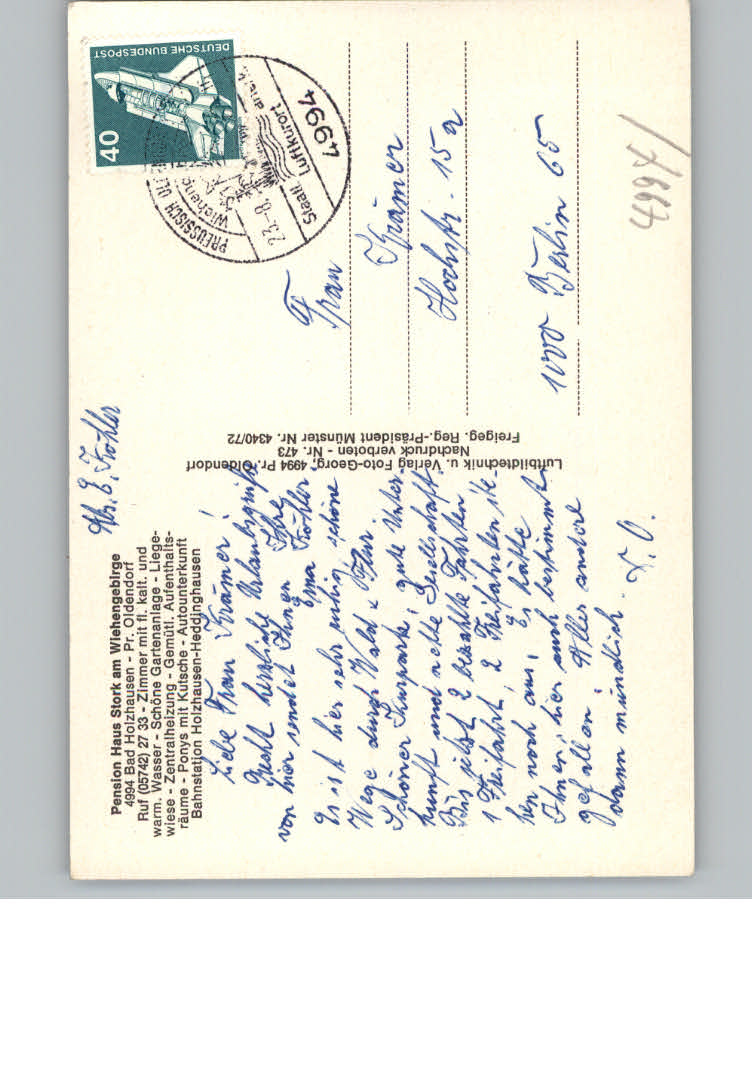 Pension Haus Stork am Wiehengebirge
4994 Bad Holzhausen - Pr. Oldendorf
Ruf (05742) 27 33 - Zimmer mit fl. kalt. und
warm. Wasser - Schöne Gartenanlage - Liege-
wiese - Zentralheizung - Gemütl. Aufenthalts-
räume - Ponys mit Kutsche - Autounterkunft
Bahnstation Holzhausen-Heddinghausen
Abs. E. Köhler
Liebe Frau Krämer!
Recht herzliche Urlaubsgrüße
von hier sendet Ihnen Ihre
Erna Köhler
Es ist hier sehr ruhig, schöne
Wege durch Wald u. Flur.
Schöner Kurpark, gute Unter-
kunft und nette Gesellschaft.
Bis jetzt 2 bezahlte Fahrten
1 Freifahrt, 2 Freifahrten ste-
hen noch aus. Es hätte
Ihnen hier auch bestimmt
gefallen. Alles andere
dann mündlich. D. O.
Luftbildtechnik u. Verlag Foto-Georg, 4994 Pr. Oldendorf
Nachdruck verboten - Nr. 473
Freigeg. Reg.-Präsident Münster Nr. 4340/72
DEUTSCHE BUNDESPOST
40
PREUSSISCH OLDENDORF
23.-8.
Staatl. Luftkurort
4994
Frau
Krämer
Hochstr. 15a
1000 Berlin 65
4997/